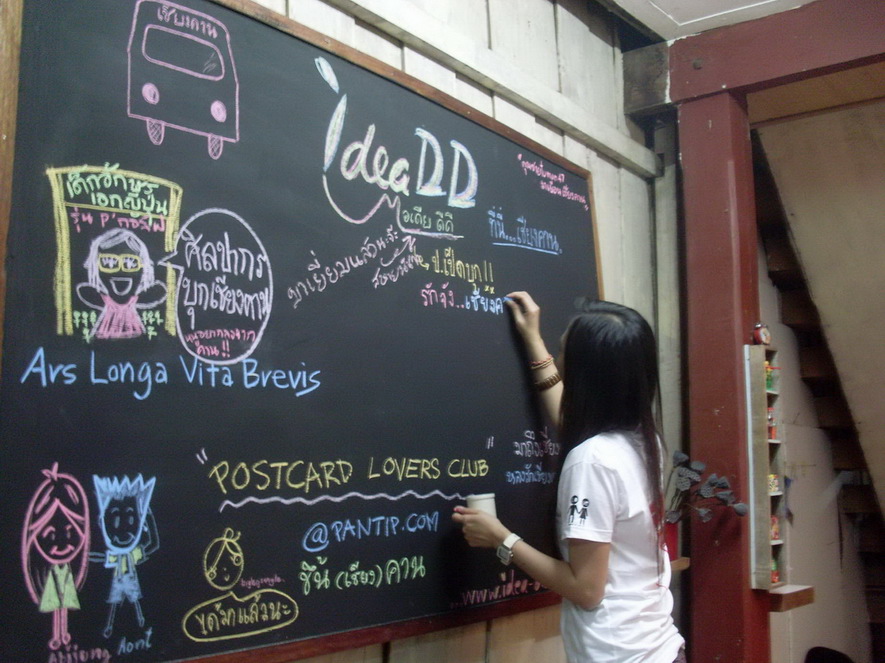 เชียงคาน
เด็กอักษร
เอกญี่ปุ่น
รุ่น P'กอล์ฟ
ศิลปากร
บุกเชียงคาน
คาน!!
Ars Longa Vita Brevis
idea DD
ไอเดีย ดีดี
ที่นี่...เชียงคาน
มาเยี่ยมแล้วนะจ้ะ
ป.เป็ดบุก!!
รักจัง..เชียงค
"POSTCARD LOVERS CLUB"
@PANTIP.COM
ขึ้น (เชียง) คาน
ได้มาแล้วนะ
Aont
มาถึงเชีย
www.idea-